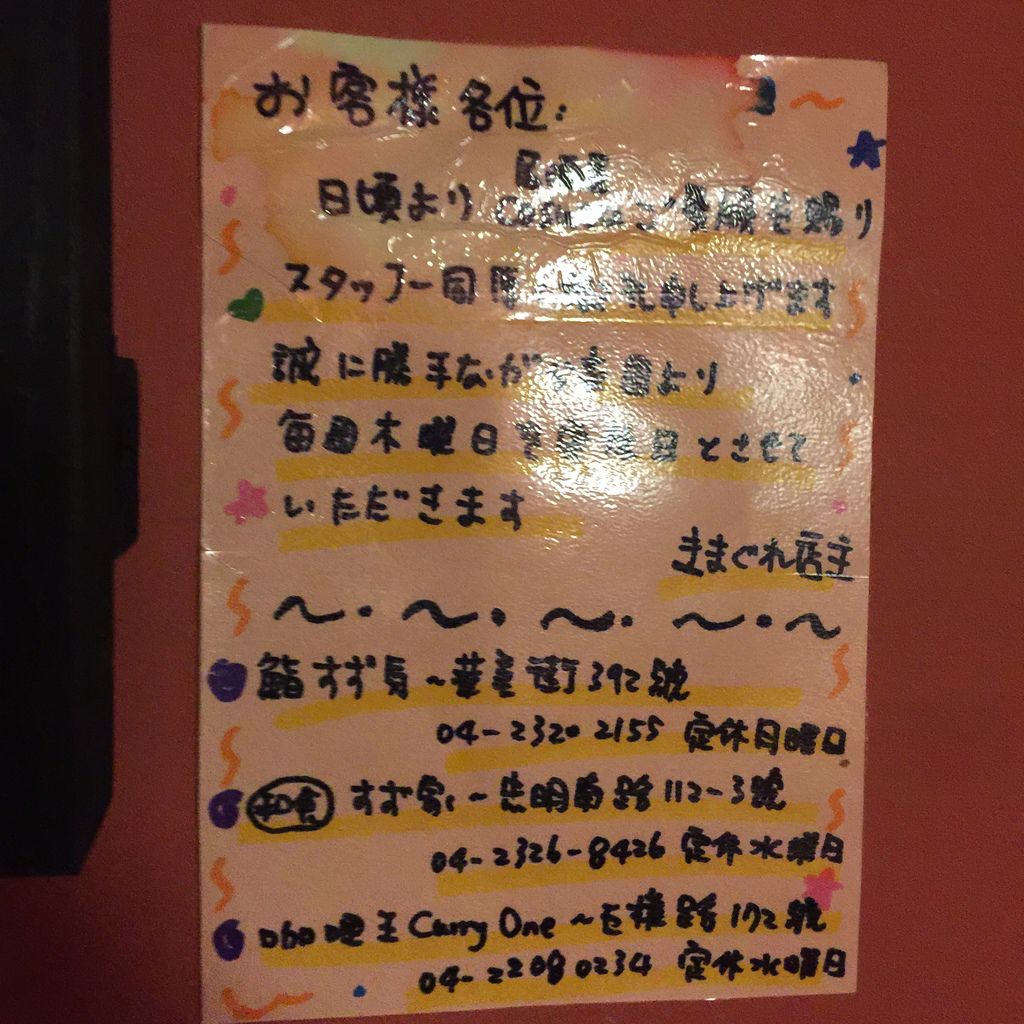 お客様各位:
日頃より ご愛顧を賜り
スタッフ一同厚 御礼申し上げます
誠に勝手ながら
より
毎週木曜日を 日とさせて
いただきます
きまぐれ店主
～・～・～・～・～
鮨すず 〜華美街392號
04-2320 2155 定休月曜日
和食 すず家〜忠明南路112-3號
04-2326-8426 定休水曜日
王 Curry One 〜 路172號
04-2208 0234 定休水曜日